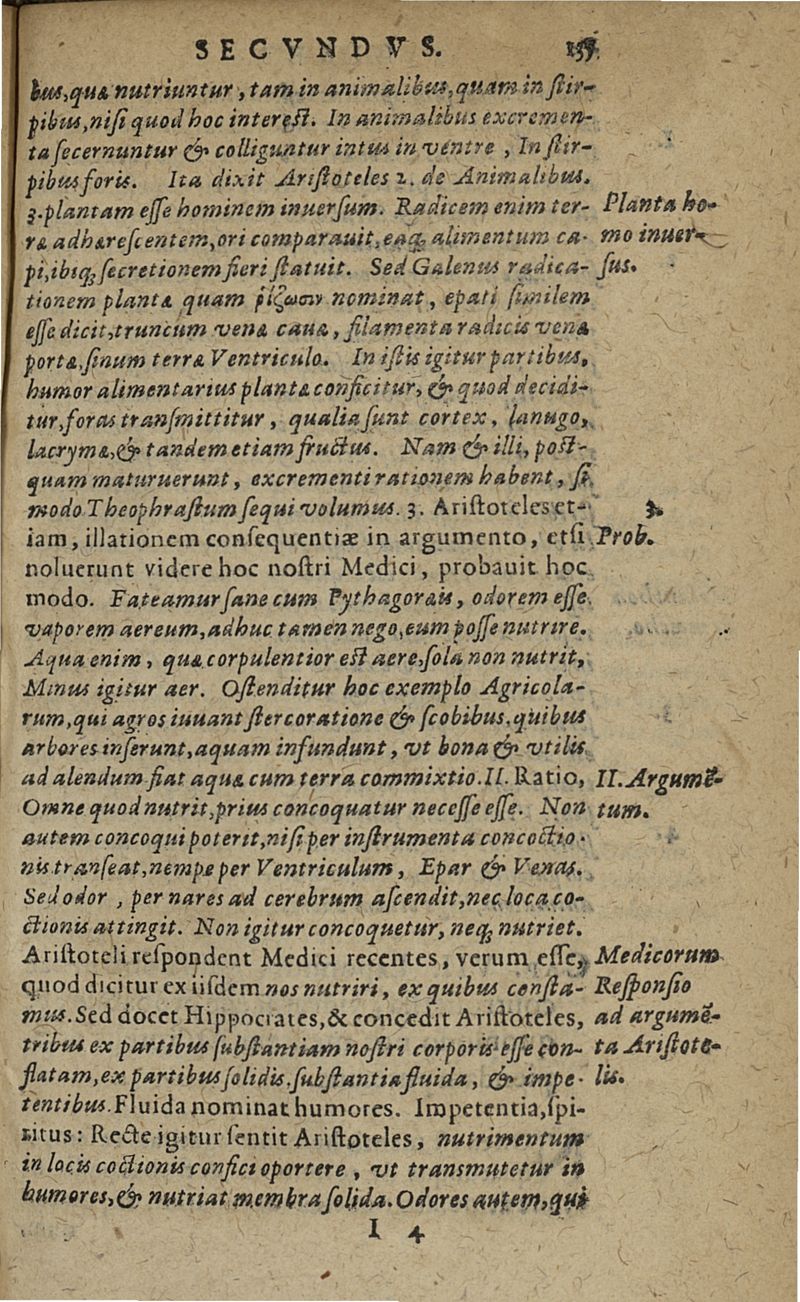 SECVNDVS.
bus,quæ nutriuntur, tam in animalibus,quam in ſtir-
pibus,niſi quod hoc intereſt. In animalibus excremen-
ta ſecernuntur & colliguntur intus in ventre, In ſtir-
pibus foris. Ita dixit Ariſtoteles 2. de Animalibus.
3.plantam eſſe hominem inuerſum. Radicem enim ter-
Planta ho-
ræ adhæreſcentem,ori comparauit,eaq; alimentum ca-
mo inuer-
pi,ibiq; ſecretionem fieri ſtatuit. Sed Galenus radica-
ſus.
tionem plantæ quam ῥίζωσιν nominat, epati ſimilem
eſſe dicit,truncum venæ cauæ, filamenta radicis venæ
portæ,ſinum terræ Ventriculo. In iſtis igitur partibus,
humor alimentarius plantæ conficitur, & quod decidi-
tur,foras tranſmittitur, qualia ſunt cortex, lanugo,
lacrymæ,& tandem etiam fructus. Nam & illi, poſt-
quam maturuerunt, excrementi rationem habent, ſi
modo Theophraſtum ſequi volumus. 3. Ariſtoteles et-
3.
iam, illationem conſequentiæ in argumento, etſi
Prob.
noluerunt videre hoc noſtri Medici, probauit hoc
modo. Fateamur ſane cum Pythagoræis, odorem eſſe
vaporem aereum,adhuc tamen nego,eum poſſe nutrire.
Aqua enim, quæ corpulentior eſt aere,ſola non nutrit,
Minus igitur aer. Oſtenditur hoc exemplo Agricola-
rum,qui agros iuuant ſtercoratione & ſcobibus,quibus
arbores inſerunt,aquam infundunt, vt bona & vtilis
ad alendum fiat aquæ cum terra commixtio.II. Ratio,
II.Argumē-
Omne quod nutrit,prius concoquatur neceſſe eſſe. Non
tum.
autem concoqui poterit,niſi per inſtrumenta concoctio-
nis tranſeat,nempe per Ventriculum, Epar & Venas.
Sed odor, per nares ad cerebrum aſcendit,nec loca co-
ctionis attingit. Non igitur concoquetur, neq; nutriet.
Ariſtoteli reſpondent Medici recentes, verum eſſe,
Medicorum
quod dicitur ex iiſdem nos nutriri, ex quibus conſta-
Reſponſio
mus. Sed docet Hippocrates,& concedit Ariſtoteles,
ad argumē-
tribus ex partibus ſubſtantiam noſtri corporis eſſe con-
ta Ariſtote-
flatam,ex partibus ſolidis.ſubſtantia fluida, & impe-
lis.
tentibus. Fluida nominat humores. Impetentia,ſpi-
ritus: Recte igitur ſentit Ariſtoteles, nutrimentum
in locis coctionis confici oportere, vt transmutetur in
humores,& nutriat membra ſolida. Odores autem,qui
I 4